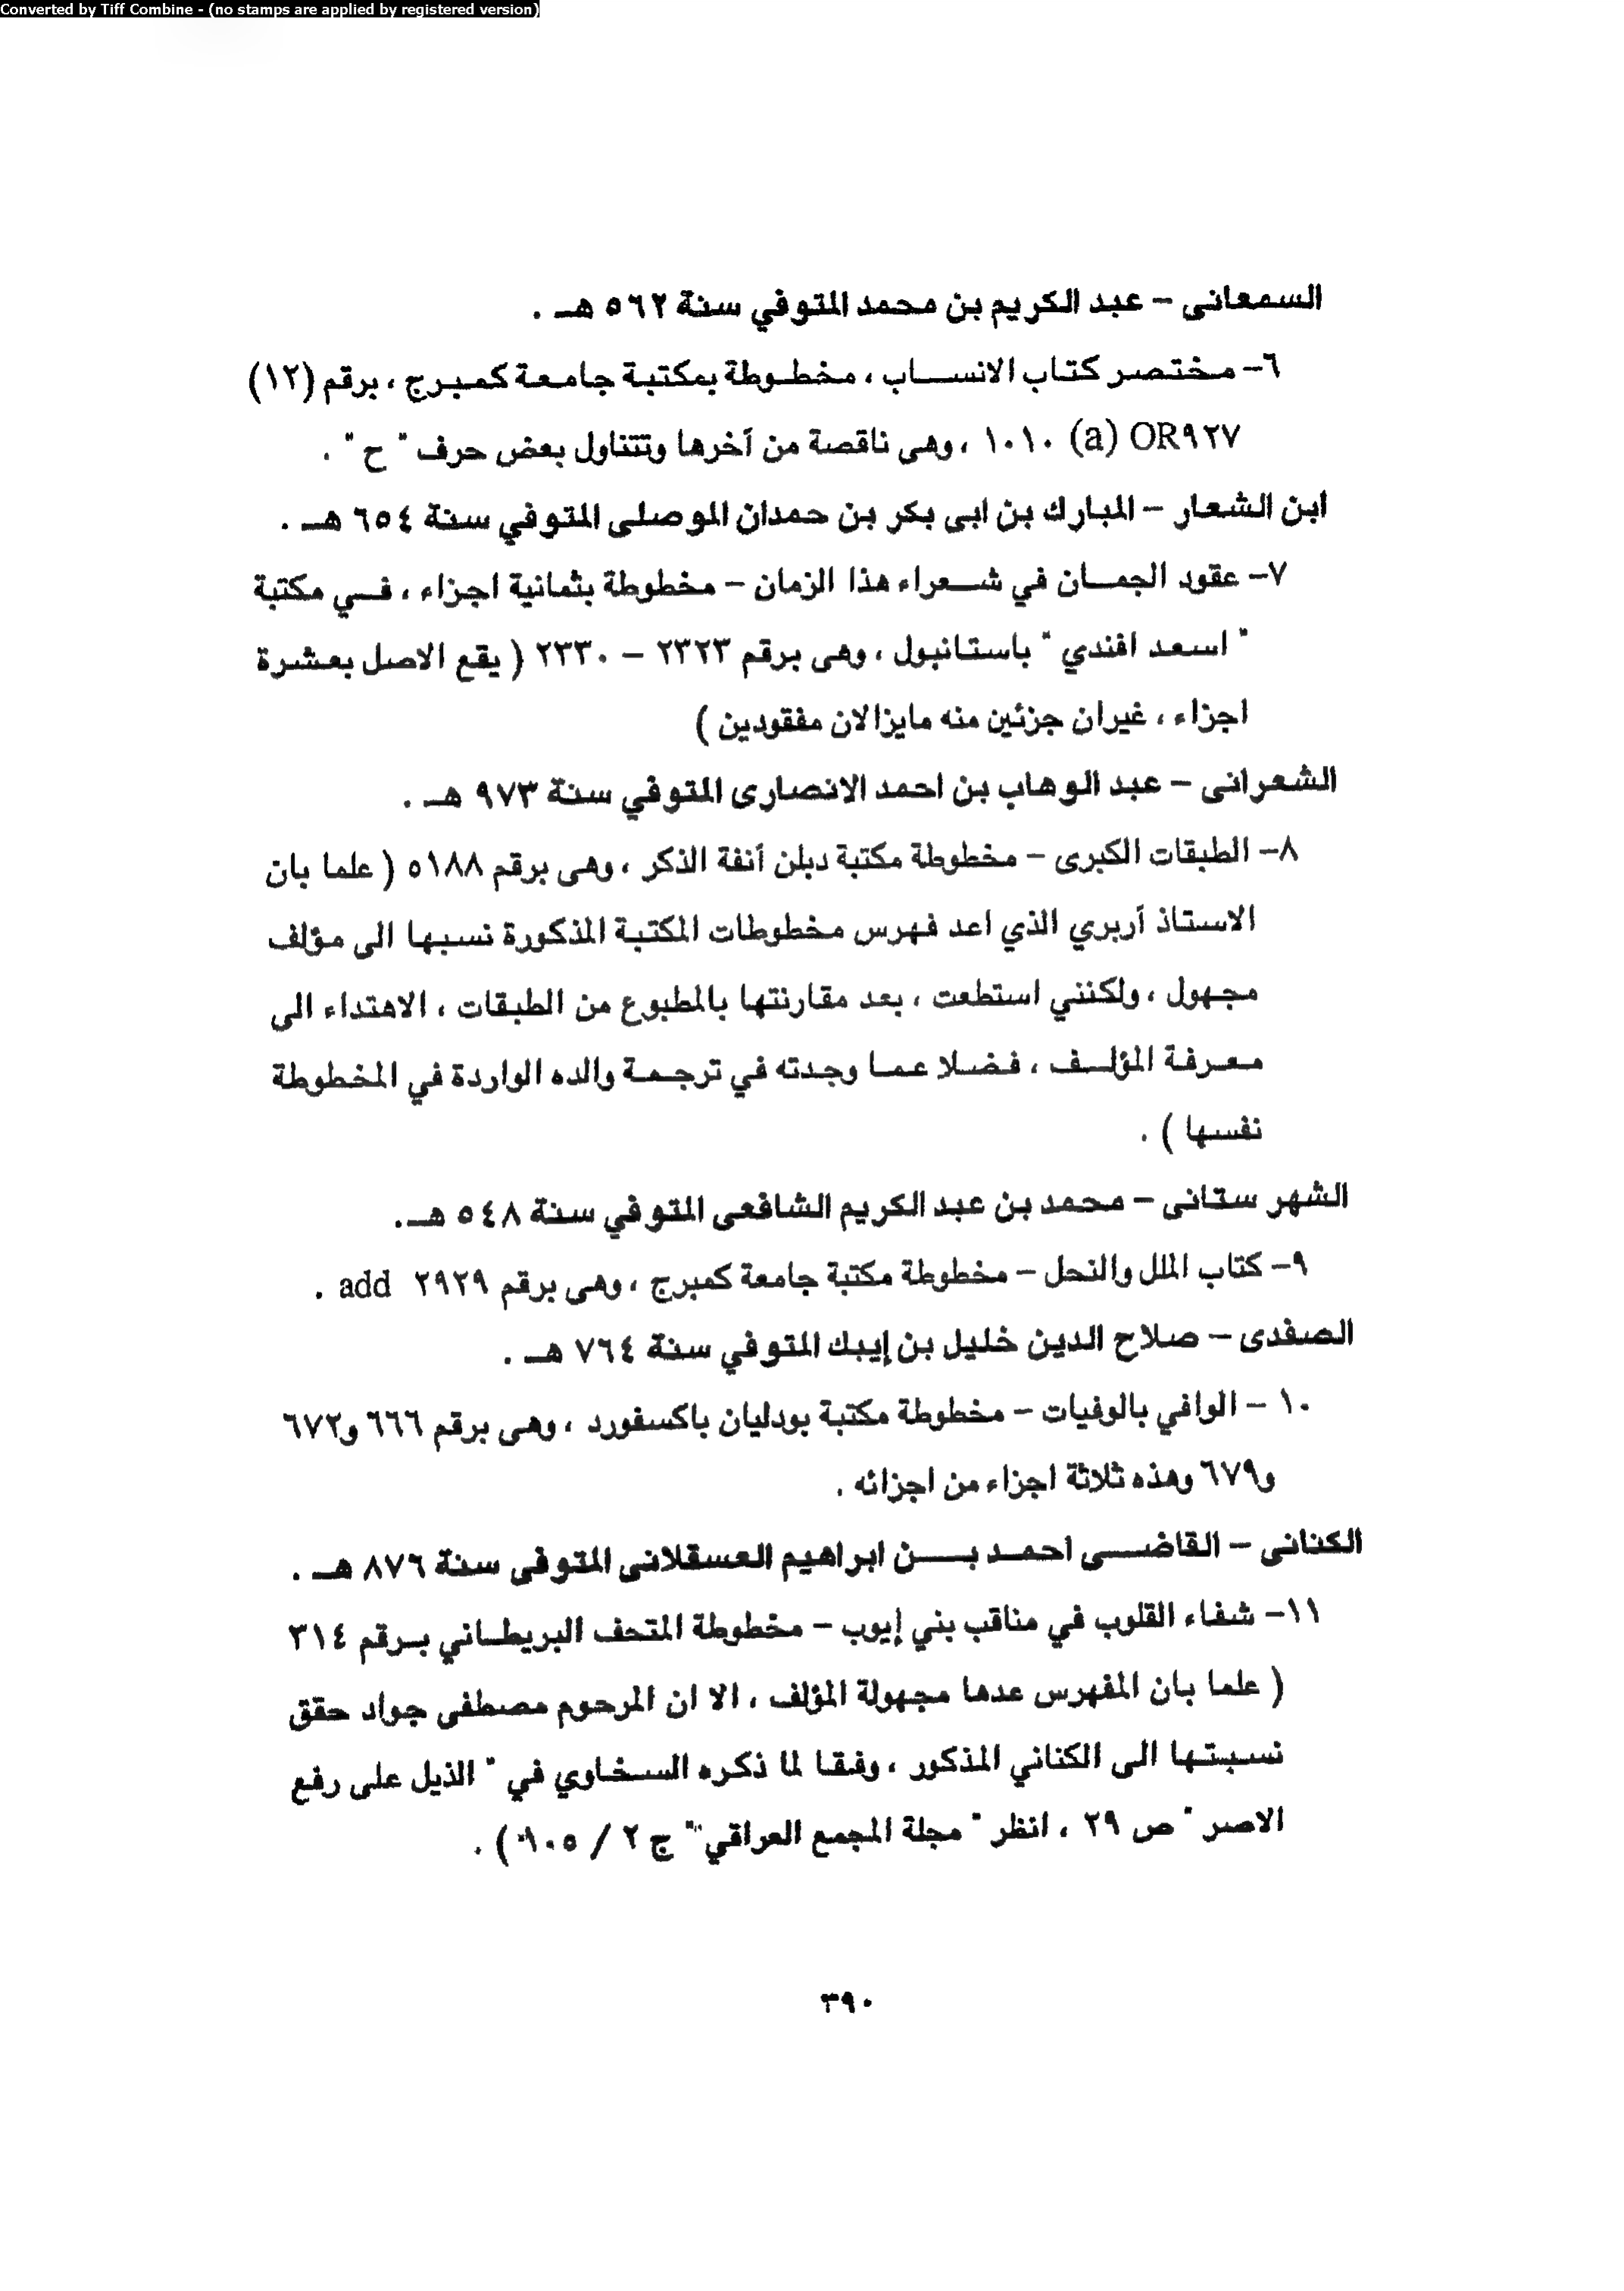 Converted by Tiff Combine - (no stamps are applied by registered version)
السمعانى – عبد الكريم بن محمد المتوفي سنة ٥٦٢ هـ .
٦– مختصر كتاب الانساب ، مخطوطة بمكتبة جامعة كمبرج ، برقم (١٢)
OR٩٢٧ (a) ١٠١٠ ، وهى ناقصة من آخرها وتتناول بعض حرف " ح " .
ابن الشعار – المبارك بن ابى بكر بن حمدان الموصلى المتوفي سنة ٦٥٤ هـ .
٧– عقود الجمان في شعراء هذا الزمان – مخطوطة بثمانية اجزاء ، في مكتبة
" اسعد افندي " باستانبول ، وهى برقم ٢٣٢٣ – ٢٣٣٠ ( يقع الاصل بعشرة
اجزاء ، غيران جزئين منه مايزالان مفقودين )
الشعرانى – عبد الوهاب بن احمد الانصارى المتوفي سنة ٩٧٣ هـ .
٨– الطبقات الكبرى – مخطوطة مكتبة دبلن آنفة الذكر ، وهى برقم ٥١٨٨ ( علما بان
الاستاذ آربري الذي اعد فهرس مخطوطات المكتبة المذكورة نسبها الى مؤلف
مجهول ، ولكنني استطعت ، بعد مقارنتها بالمطبوع من الطبقات ، الاهتداء الى
معرفة المؤلف ، فضلا عما وجدته في ترجمة والده الواردة في المخطوطة
نفسها ) .
الشهر ستانى – محمد بن عبد الكريم الشافعى المتوفي سنة ٥٤٨ هـ.
٩– كتاب الملل والنحل – مخطوطة مكتبة جامعة كمبرج ، وهى برقم ٢٩٢٩ add .
الصفدى – صلاح الدين خليل بن إيبك المتوفي سنة ٧٦٤ هـ .
١٠ – الوافي بالوفيات – مخطوطة مكتبة بودليان باكسفورد ، وهى برقم ٦٦٦ و٦٧٢
و٦٧٩ وهذه ثلاثة اجزاء من اجزائه .
الكنانى – القاضى احمد بن ابراهيم العسقلانى المتوفى سنة ٨٧٦ هـ .
١١– شفاء القلوب في مناقب بني إيوب – مخطوطة المتحف البريطاني برقم ٣١٤
( علما بان المفهرس عدها مجهولة المؤلف ، الا ان المرحوم مصطفى جواد حقق
نسبتها الى الكناني المذكور ، وفقا لما ذكره السخاوي في " الذيل على رفع
الاصر " ص ٢٩ ، انظر " مجلة المجمع العراقي " ج ٢ / ١٠٥ ) .
٣٩٠